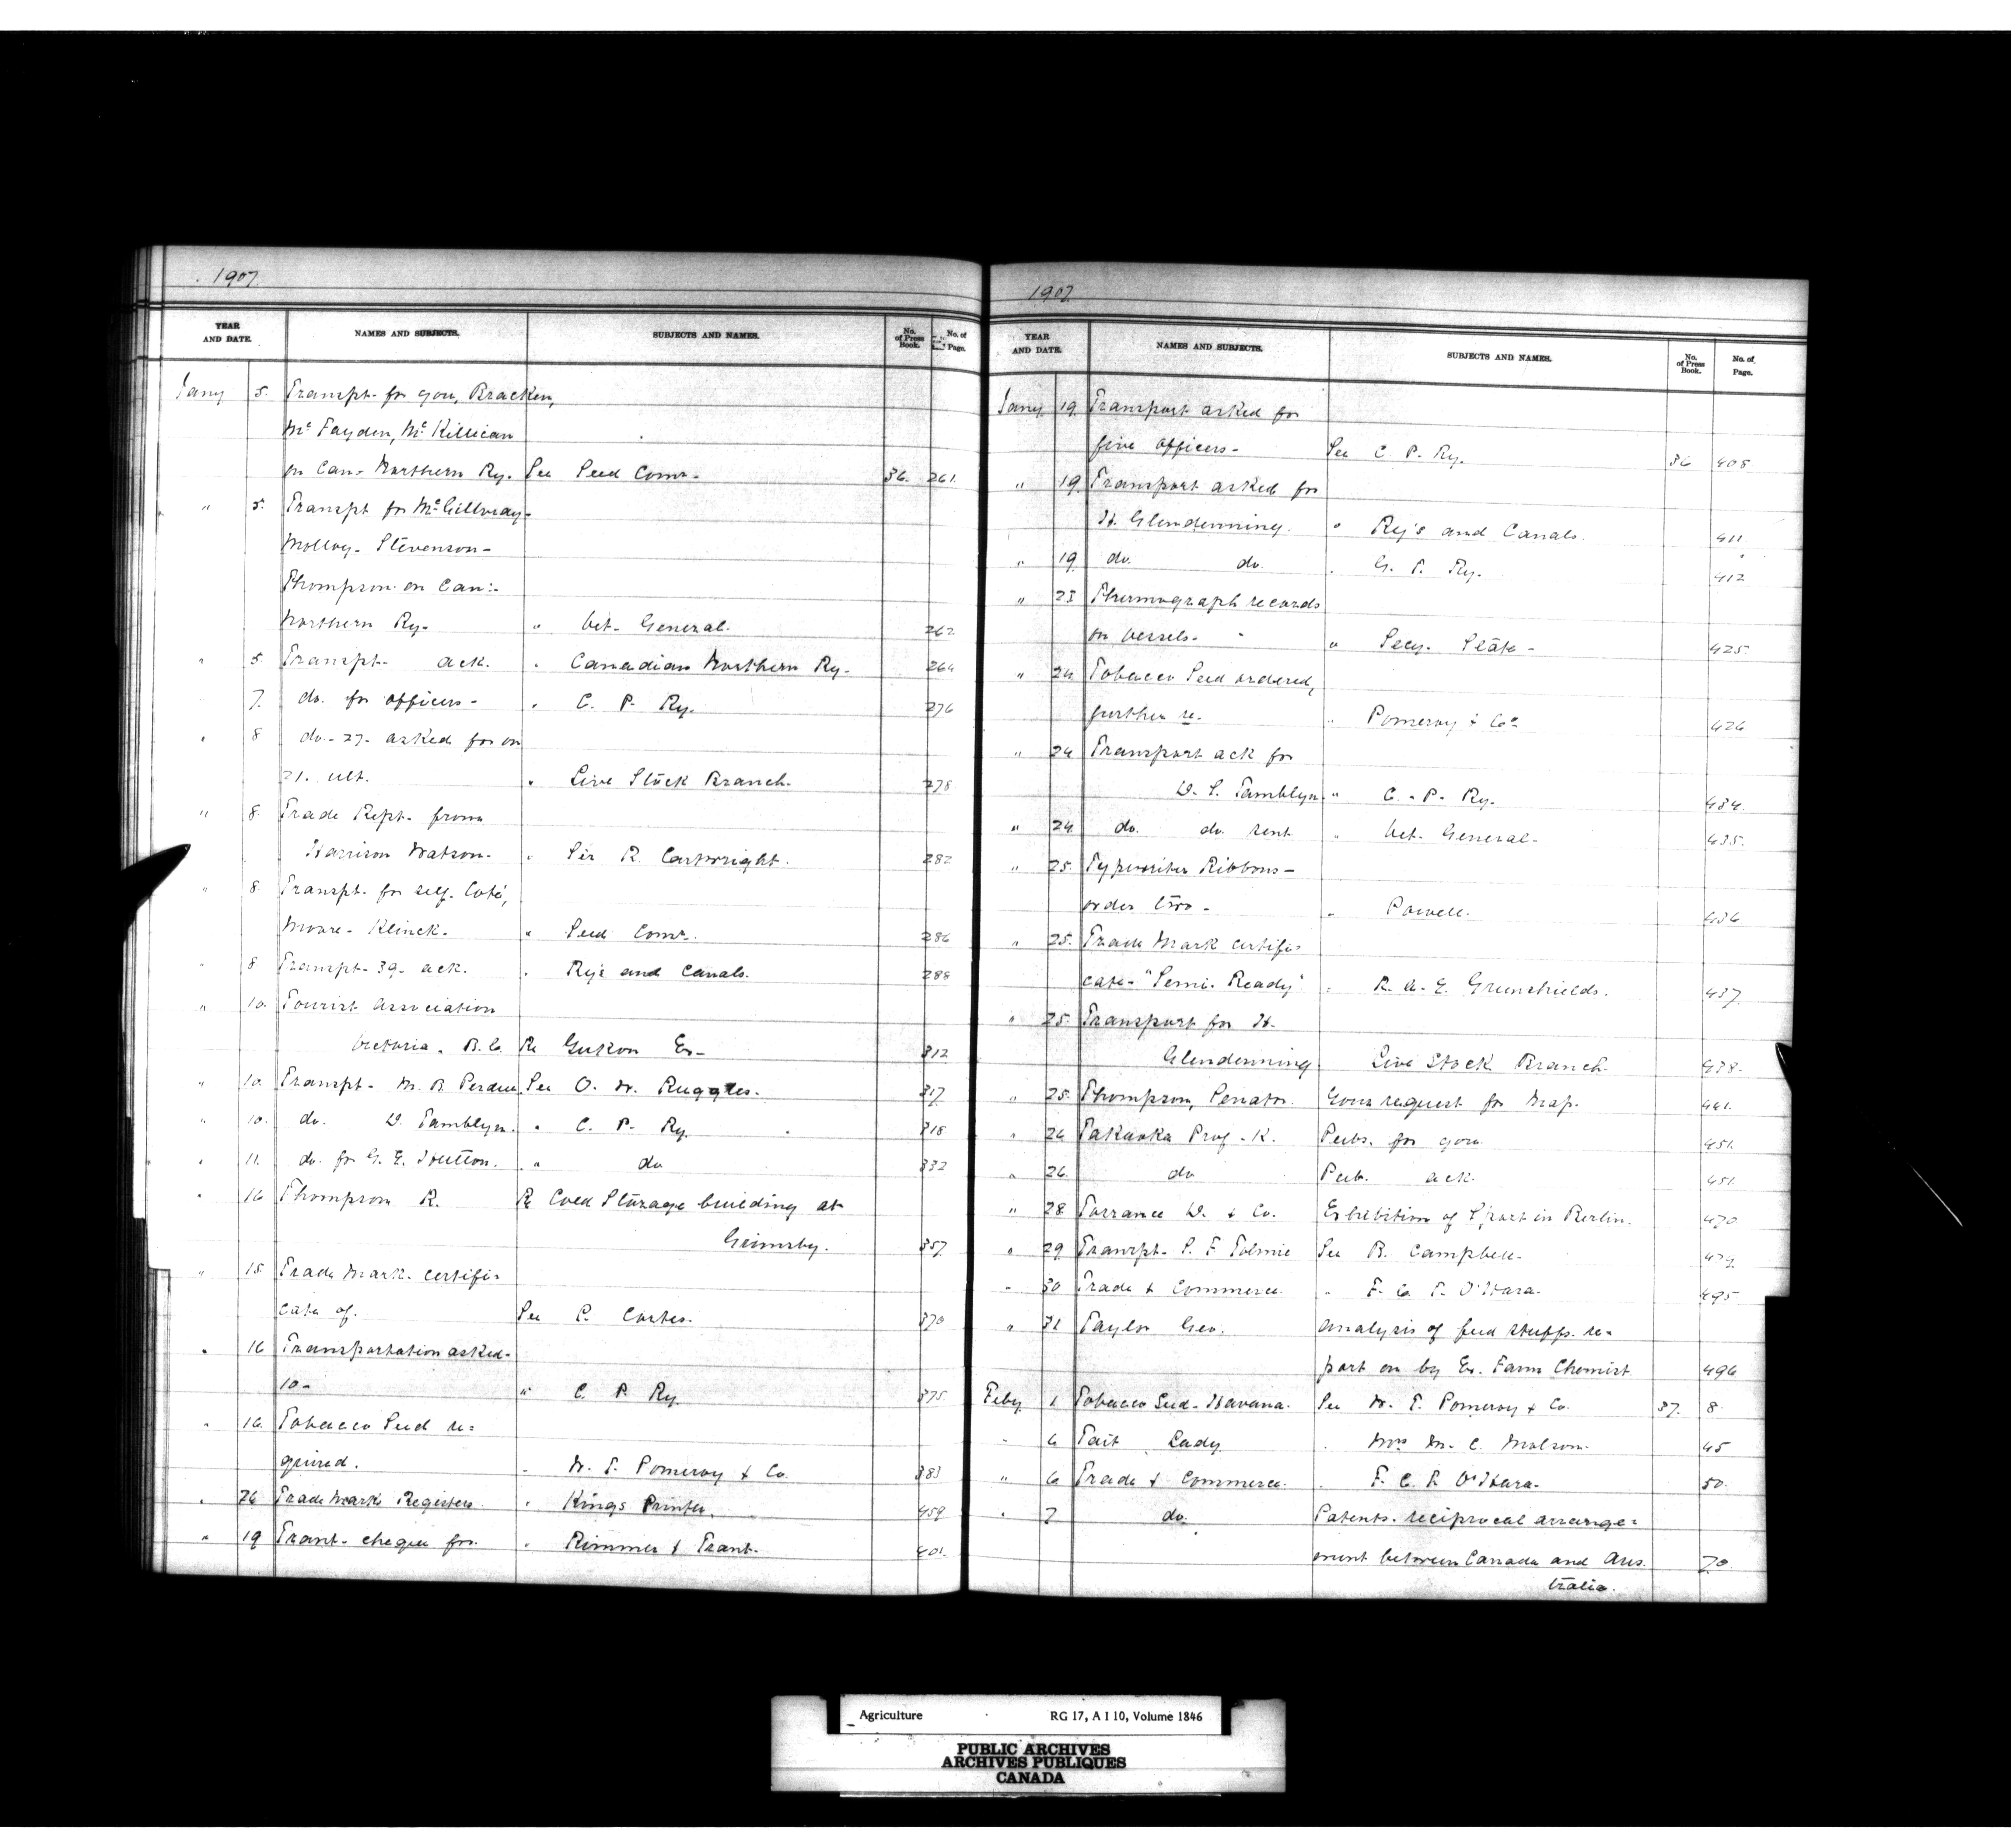 1907.
YEAR AND DATE. NAMES AND SUBJECTS. SUBJECTS AND NAMES. No. of Press Book. No. of Page.
Jany 5. Transpt- for you, Bracken,
Mc Fayden, Mc Killican
on Can- Northern Ry. See Seed Comr- 36. 261.
" 5. Transpt for McGillvray-
Molloy- Stevenson-
Thompson on Can:-
Northern Ry- " Vet- General. 262.
" 5. Transpt- ack. " Canadian Northern Ry- 264
7. do. for officers- " C. P. Ry. 276
" 8 do- 27- asked for on
21. ult. " Live Stock Branch. 278
" 8. Trade Rept- from
Harrison Watson- " Sir R. Cartwright. 282
" 8. Transpt- for self- Coté,
Moore- Klinck. " Seed Comr. 286
" 8 Transpt- 39- ack. " Ry's and Canals. 288
" 10. Tourist Association
Victoria. B. C. Re Yukon Ex- 312
" 10. Transpt- M. B. Perdue See O. W. Ruggles. 317
" 10. do. D. Tamblyn. " C. P. Ry. 318
" 11. do. for G. E. " do 332
" 16 Thompson R. Re Cold Storage building at
Grimsby. 357
" 15. Trade Mark- certifi-
cate of. See P. Coates. 370
" 16 Transportation asked-
10- " C. P. Ry. 375.
" 16. Tobacco Seed re-
quired. " W. T. Pomeroy & Co. 383
" 26 Trade Marks Registers. " Kings Printer. 459
" 19 Trant- cheque for. " Rimmer & Trant- 401.
1907
YEAR AND DATE. NAMES AND SUBJECTS. SUBJECTS AND NAMES. No. of Press Book. No. of Page.
Jany. 19. Transport asked for
five officers- See C. P. Ry. 36 408
" 19. Transport asked for
H. Glendenning. " Ry's and Canals. 411
" 19. do. do. " G. T. Ry. 412
" 23 Thermograph records
on vessels- " Secy. State- 425
" 24 Tobacco Seed ordered,
further re. " Pomeroy & Co. 426
" 24 Transport ack for
D. S. Tamblyn " C. P. Ry. 434.
" 24 do. do. sent " Vet- General- 435.
" 25. Typewriter Ribbons-
order two- " Powell. 436
" 25. Trade Mark certifi-
cate- "Semi- Ready" " R. A. E. Greenshields. 437.
" 25. Transport for H.
Glendenning Live Stock Branch. 438.
" 25. Thompson, Senator. Your request for Map. 441.
" 26 Takaoka Prof- K. Pubs. for you. 451.
" 26. do Pub. ack. 451.
" 28 Torrance D. & Co. Exhibition of Sport in Berlin. 470
" 29 Transpt- S. F Tolmie See B. Campbell-
" 30 Trade & Commerce. " F. C. T. O'Hara. 495
" 31 Taylor Geo. Analysis of feed stuffs. re-
port on by Ex. Farm Chemist 496
Feby 1 Tobacco Seed- Havana. See W. T. Pomeroy & Co. 37. 8
" 6 Tait Lady. " Mrs M. C. Molson. 45
" 6 Trade & Commerce. " F. C. T. O'Hara- 50.
" 7 do. Patents. reciprocal arrange-
ment between Canada and Aus- 70.
tralia.
Agriculture RG 17, A I 10, Volume 1846
PUBLIC ARCHIVES
ARCHIVES PUBLIQUES
CANADA